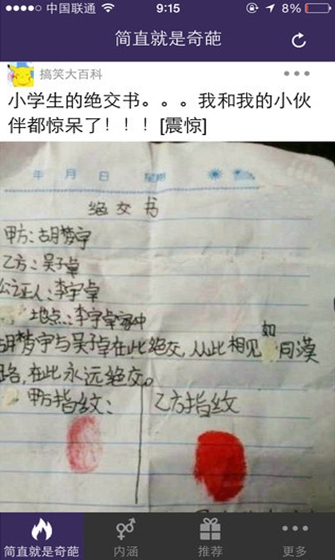 中国联通 9:15 8%
简直就是奇葩
搞笑大百科
小学生的绝交书。。。我和我的小伙
伴都惊呆了！！！[震惊]
年 月 日 星期
绝交书
甲方:胡梦宇
乙方:吴子卓
公证人:李宇卓
地点:李宇卓家中
胡梦宇与吴子卓在此绝交,从此相见如同漠
路,在此永远绝交。
甲方指纹: 乙方指纹
简直就是奇葩 内涵 推荐 更多